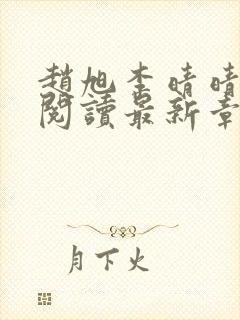 趙旭李晴晴
閱讀最新章
月下火